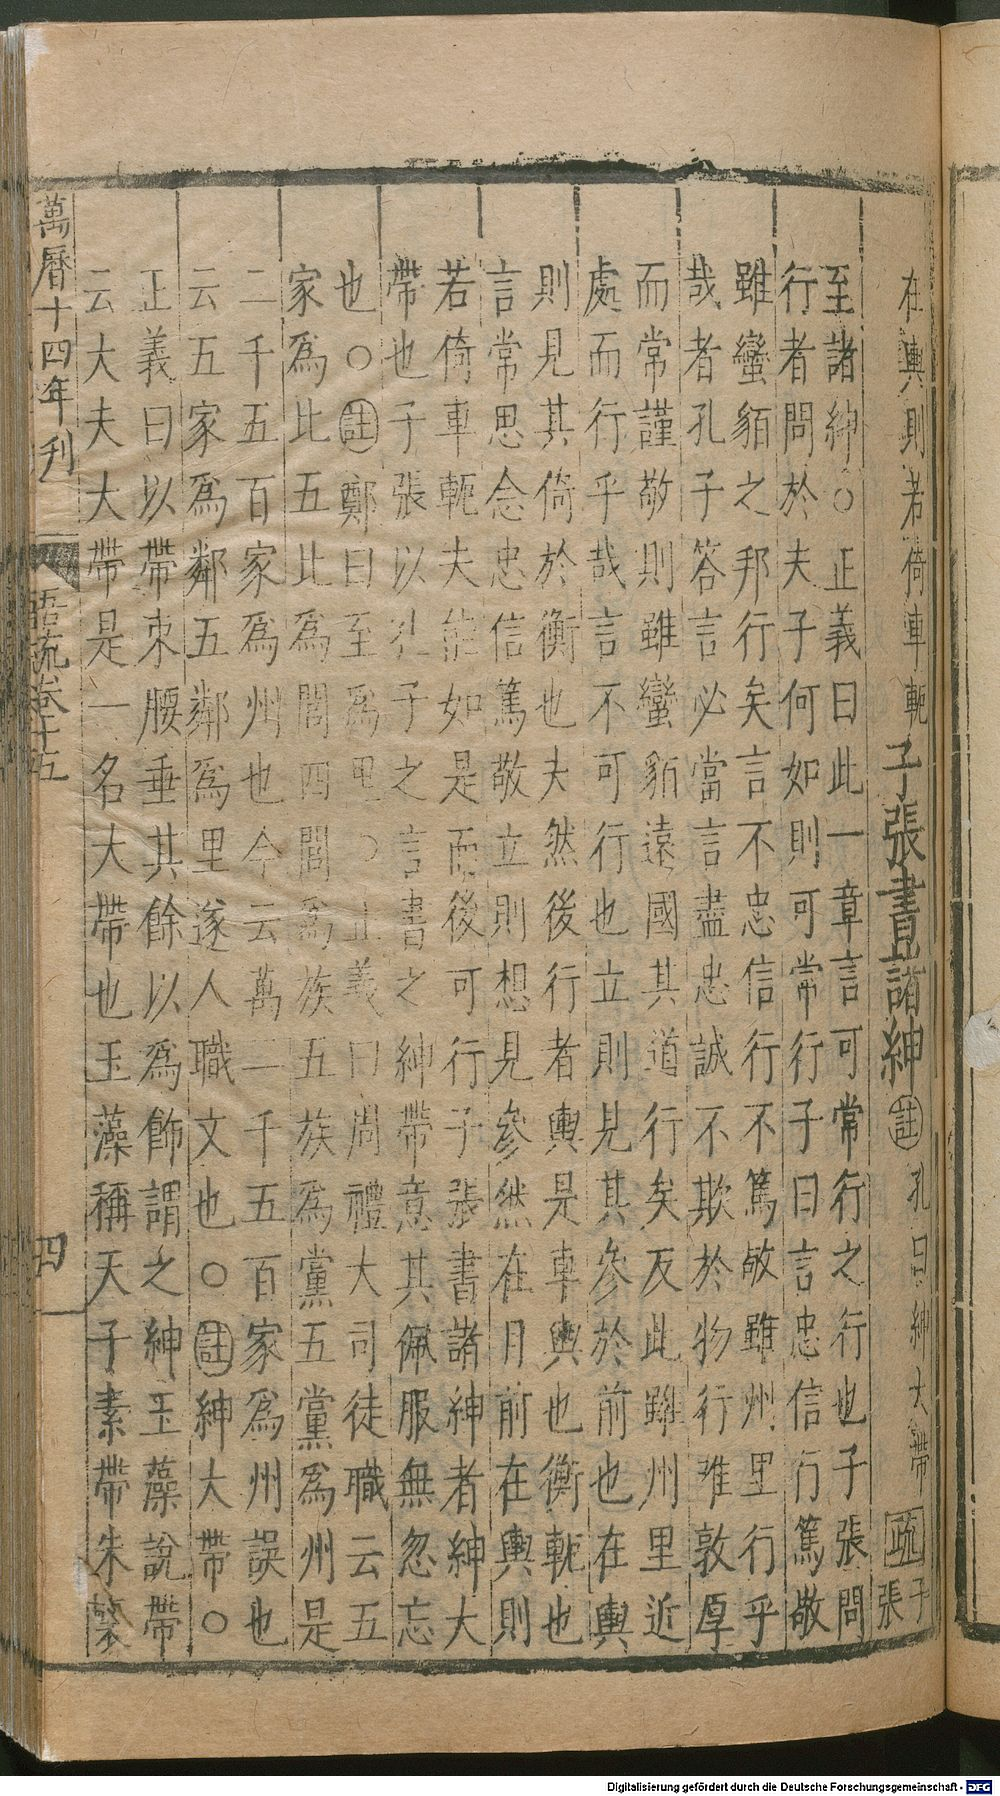 在輿則若倚車軶子張書諸紳註孔曰紳大帶疏子張
至諸紳○正義曰此一章言可常行之行也子張問
行者問於夫子何如則可常行子曰言忠信行篤敬
雖蠻貊之邦行矣言不忠信行不篤敬雖州里行乎
哉者孔子答言必當言盡忠誠不欺於物行唯敦厚
而常謹敬則雖蠻貊遠國其道行矣反此雖州里近
處而行乎哉言不可行也立則見其參於前也在輿
則見其倚於衡也夫然後行者輿是車輿也衡軶也
言常思念忠信篤敬立則想見參然在目前在輿則
若倚車軶夫能如是而後可行子張書諸紳者紳大
帶也子張以孔子之言書之紳帶意其佩服無忽忘
也○註鄭曰至爲里○正義曰周禮大司徒職云五
家爲比五比爲閭四閭爲族五族爲黨五黨爲州是
二千五百家爲州也今云萬二千五百家爲州誤也
云五家爲鄰五鄰爲里遂人職文也○註紳大帶○
正義曰以帶束腰垂其餘以爲飾謂之紳玉藻說帶
云大夫大帶是一名大帶也玉藻稱天子素帶朱裏
萬曆十四年刋 語疏卷十五 四
Digitalisierung gefördert durch die Deutsche Forschungsgemeinschaft - DFG